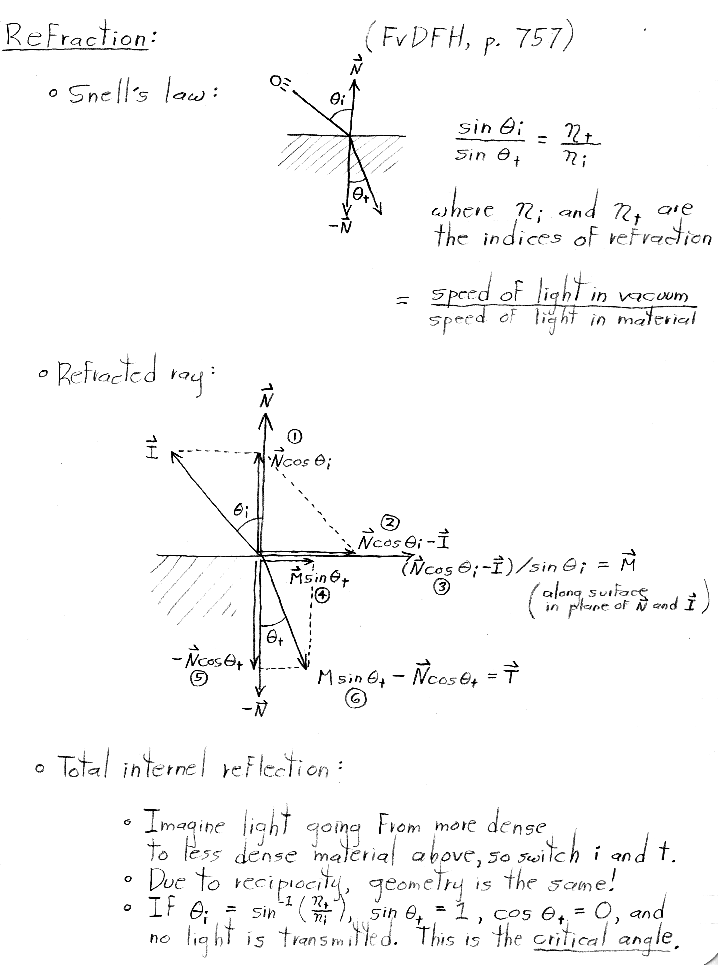 Refraction: (FvDFH, p. 757)
∘ Snell's law:
N⃗
θi
θt
-N⃗
sin θi / sin θt = ηt / ηi
where ηi and ηt are
the indices of refraction
= speed of light in vacuum / speed of light in material
∘ Refracted ray:
N⃗
I⃗
①
N⃗cos θi
θi
②
N⃗cos θi-I⃗
(N⃗cos θi-I⃗)/sin θi = M⃗
③
(along surface
in plane of N⃗ and I⃗)
M⃗sin θt
④
θt
-N⃗cos θt
⑤
M sin θt - N⃗cos θt = T⃗
⑥
-N⃗
∘ Total internal reflection:
∘ Imagine light going from more dense
to less dense material above, so switch i and t.
∘ Due to reciprocity, geometry is the same!
∘ If θi = sin⁻¹(ηt/ηi), sin θt = 1, cos θt = 0, and
no light is transmitted. This is the critical angle.